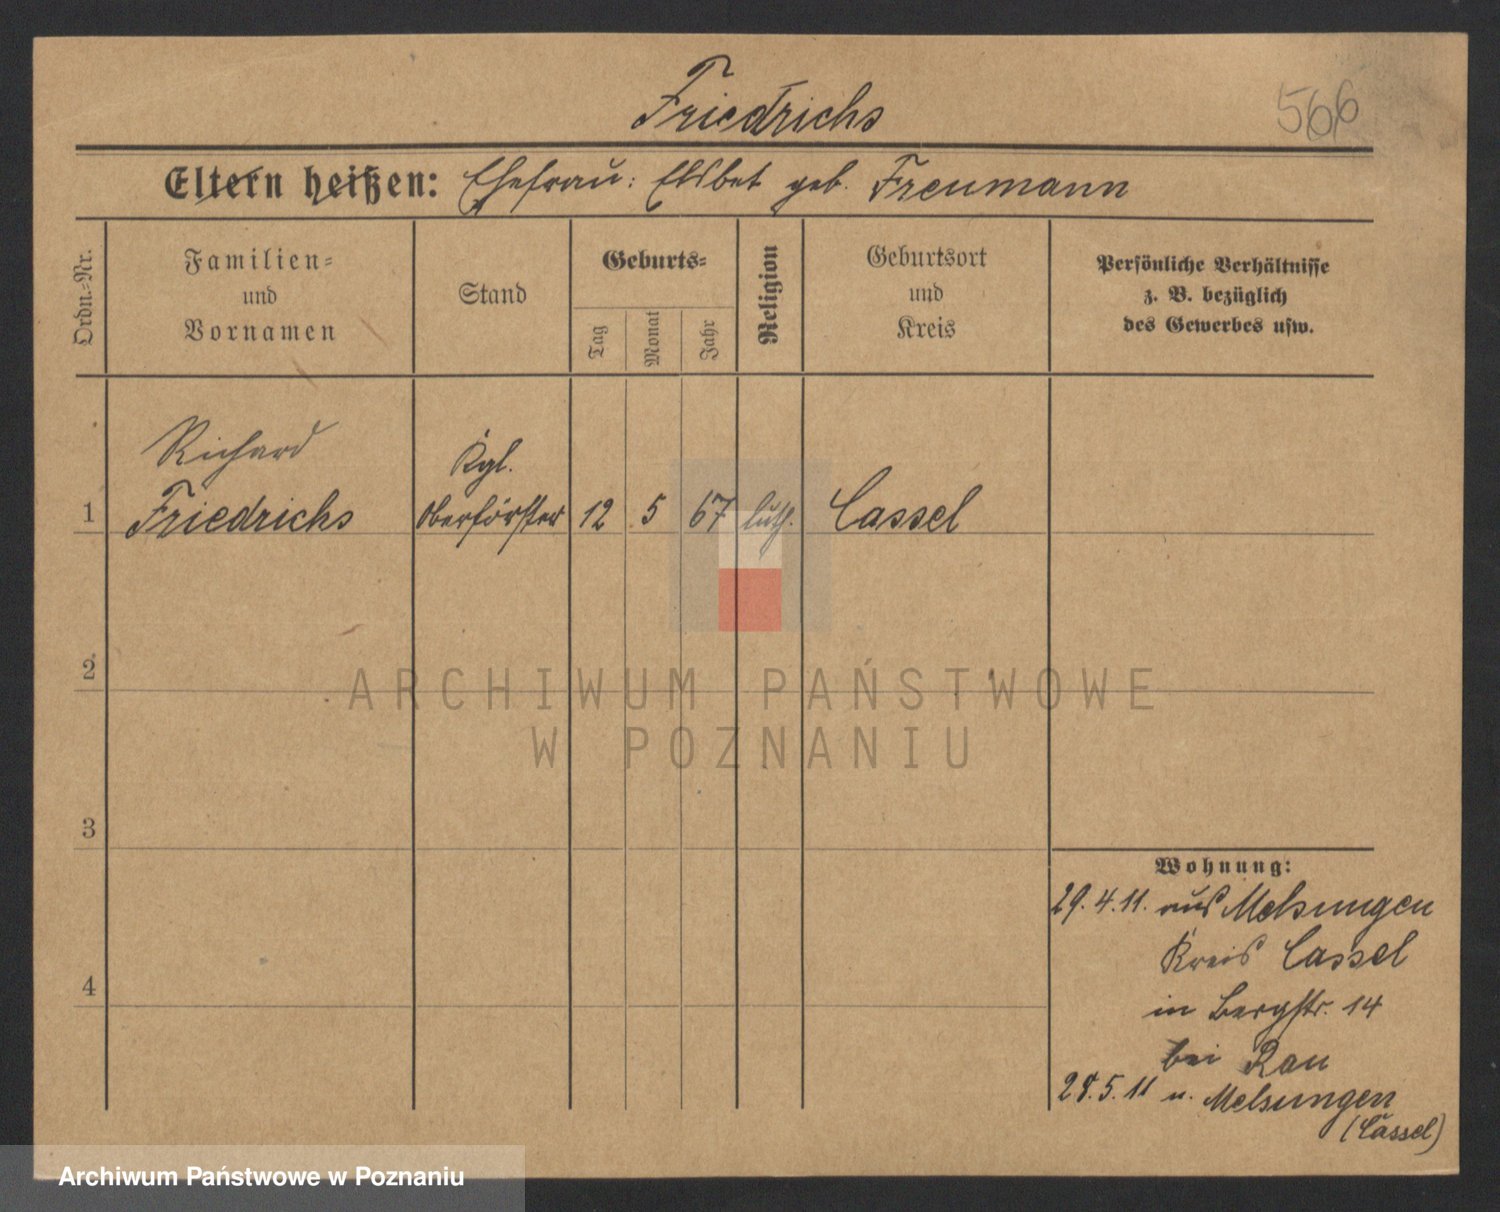 Friedrichs
566
Eltern heißen: Ehefrau: Elsbet geb. Freumann
Ordn.-Nr.
Familien-
und
Vornamen
Stand
Geburts-
Tag
Monat
Jahr
Religion
Geburtsort
und
Kreis
Persönliche Verhältnisse
z. B. bezüglich
des Gewerbes usw.
Richard
Kgl.
1 Friedrichs Oberförster 12 5 67 luth. Cassel
2
ARCHIWUM PAŃSTWOWE
W POZNANIU
3
Wohnung:
29.4.11. aus Melsungen
Kreis Cassel
4
in Bergstr. 14
bei Rau
28.5.11 n. Melsungen
(Cassel)
Archiwum Państwowe w Poznaniu